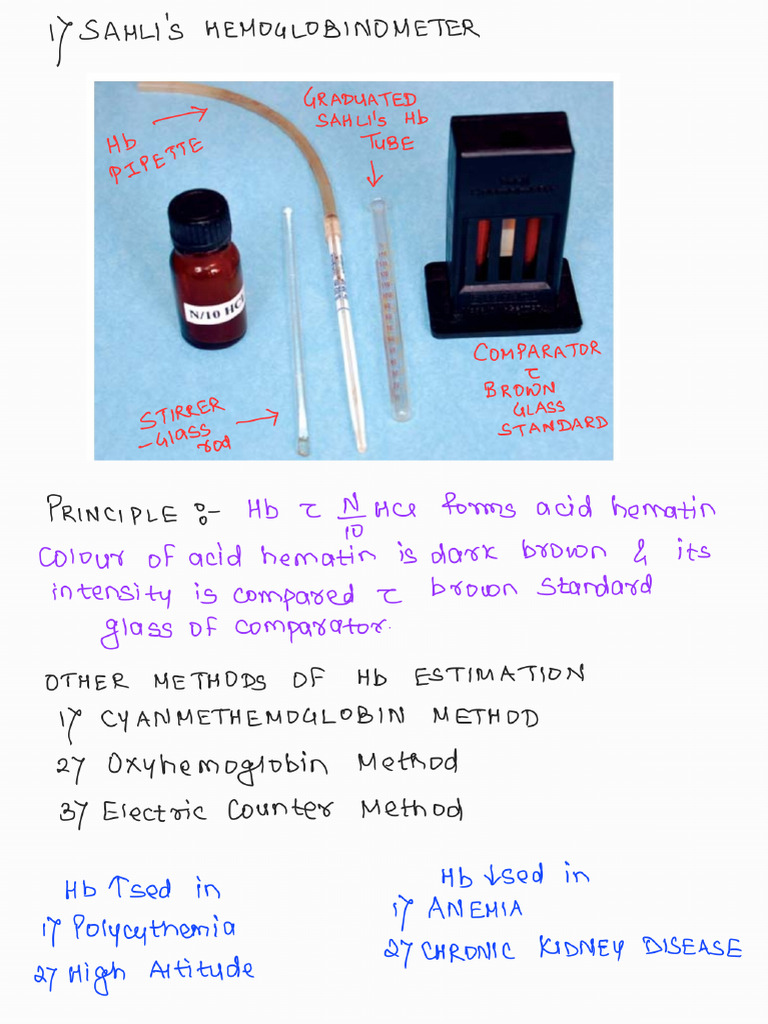 1) SAHLI'S HEMOGLOBINOMETER
Hb
PIPETTE
GRADUATED
SAHLI'S Hb
TUBE
N/10 HCl
COMPARATOR
c̄
BROWN
GLASS
STANDARD
STIRRER
-Glass
rod
PRINCIPLE :- Hb c̄ N/10 HCl forms acid hematin
Colour of acid hematin is dark brown & its
intensity is compared c̄ brown standard
glass of comparator.
OTHER METHODS OF Hb ESTIMATION
1) CYANMETHEMOGLOBIN METHOD
2) Oxyhemoglobin Method
3) Electric Counter Method
Hb ↑sed in
1) Polycythemia
2) High Altitude
Hb ↓sed in
1) ANEMIA
2) CHRONIC KIDNEY DISEASE